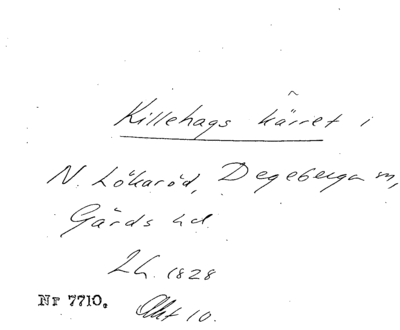 Killehags kärret i
N. Lökaröd, Degeberga sn,
Gärds hd.
Lh. 1828
Nr 7710. Akt 10.